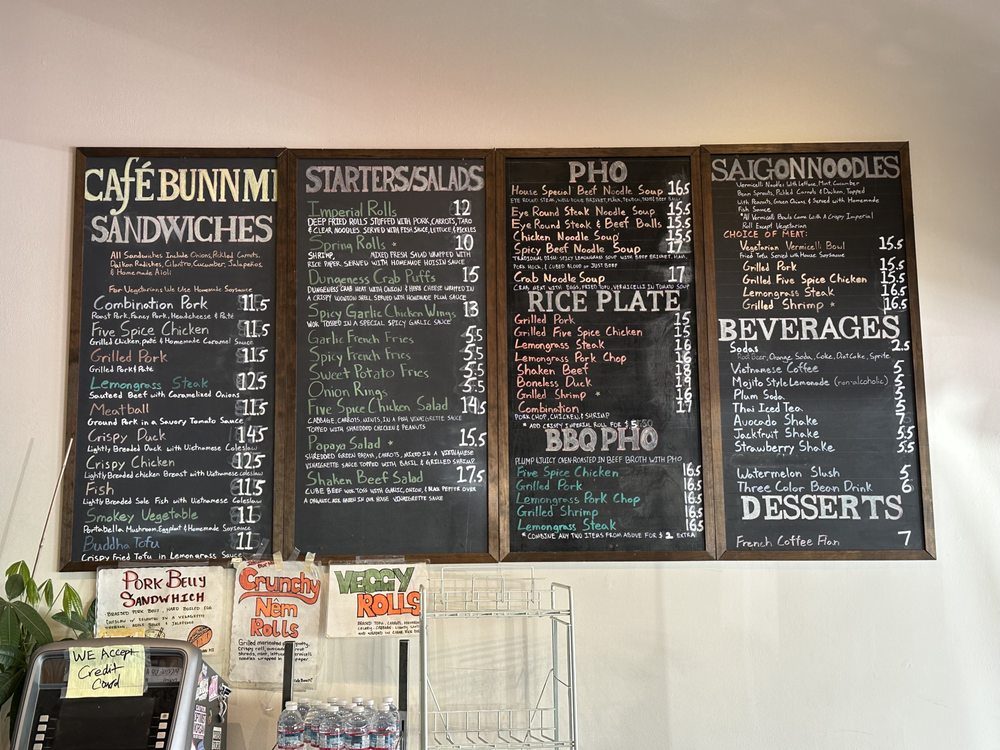 Café BUNN MI
SANDWICHES
All Sandwiches Include Onions, Pickled Carrots,
Daikon Radishes, Cilantro, Cucumber, Jalapeños
& Homemade Aioli
For Vegetarians We Use Homemade Soysauce
Combination Pork 11.5
Roast Pork, Fancy Pork, Headcheese & Paté
Five Spice Chicken 11.5
Grilled Chicken, paté & Homemade Caramel Sauce
Grilled Pork 11.5
Grilled Pork & Paté
Lemongrass Steak 12.5
Sauteed Beef with Caramelized Onions
Meatball 11.5
Ground Pork in a Savory Tomato Sauce
Crispy Duck 14.5
Lightly Breaded Duck with Vietnamese Coleslaw
Crispy Chicken 12.5
Lightly Breaded chicken Breast with Vietnamese coleslaw
Fish 11.5
Lightly Breaded Sole Fish with Vietnamese Coleslaw
Smokey Vegetable 11
Portabella Mushroom, Eggplant & Homemade Soysauce
Buddha Tofu 11
Crispy Fried Tofu in Lemongrass Sauce
STARTERS/SALADS
Imperial Rolls 12
DEEP FRIED ROLLS STUFFED WITH PORK, CARROTS, TARO
& CLEAR NOODLES. SERVED WITH FISH SAUCE, LETTUCE & PICKLES
Spring Rolls * 10
SHRIMP, MIXED FRESH SALAD WRAPPED WITH
RICE PAPER. SERVED WITH HOMEMADE HOISIN SAUCE
Dungeness Crab Puffs 15
DUNGENESS CRAB MEAT WITH ONION & HERB CHEESE WRAPPED IN
A CRISPY WONTON SHELL. SERVED WITH HOMEMADE PLUM SAUCE
Spicy Garlic Chicken Wings 13
WOK TOSSED IN A SPECIAL SPICY GARLIC SAUCE
Garlic French Fries 5.5
Spicy French Fries 5.5
Sweet Potato Fries 5.5
Onion Rings 5.5
Five Spice Chicken Salad 14.5
CABBAGE, CARROTS, MINTS, IN A FISH VINAIGRETTE SAUCE
TOPPED WITH SHREDDED CHICKEN & PEANUTS
Papaya Salad * 15.5
SHREDDED GREEN PAPAYA, CARROTS, MIXED IN A VIETNAMESE
VINAIGRETTE SAUCE TOPPED WITH BASIL & GRILLED SHRIMP
Shaken Beef Salad 17.5
CUBE BEEF WOK TOSS WITH GARLIC, ONION, & BLACK PEPPER OVER
A ORGANIC MIX GREEN IN OUR HOUSE VINAIGRETTE SAUCE
PHO
House Special Beef Noodle Soup 16.5
Eye Round Steak Noodle Soup 15.5
Eye Round Steak & Beef Balls 15.5
Chicken Noodle Soup 15.5
Spicy Beef Noodle Soup 17
TRADITIONAL DISH: SPICY LEMONGRASS SOUP WITH BEEF BRISKET, HAM,
PORK HOCK, & CUBED BLOOD OR JUST BEEF
Crab Noodle Soup 17
CRAB MEAT WITH EGGS, FRIED TOFU, VERMICELLI IN TOMATO SOUP
RICE PLATE
Grilled Pork 15
Grilled Five Spice Chicken 15
Lemongrass Steak 16
Lemongrass Pork Chop 16
Shaken Beef 18
Boneless Duck 19
Grilled Shrimp * 16
Combination 17
PORK CHOP, CHICKEN, & SHRIMP
* ADD CRISPY IMPERIAL ROLL FOR $
BBQ PHO
PLUMP & JUICY OVEN-ROASTED IN BEEF BROTH WITH PHO
Five Spice Chicken 16.5
Grilled Pork 16.5
Lemongrass Pork Chop 16.5
Grilled Shrimp 16.5
Lemongrass Steak 16.5
* COMBINE ANY TWO ITEMS FROM ABOVE FOR $2 EXTRA
SAIGON NOODLES
Vermicelli Noodles With Lettuce, Mint, Cucumber
Bean Sprouts, Pickled Carrots & Daikon, Topped
with Peanuts, Green Onions & Served with Homemade
Fish Sauce
*All Vermicelli Bowls Come With A Crispy Imperial
Roll Except Vegetarian
CHOICE OF MEAT:
Vegetarian Vermicelli Bowl 15.5
Fried Tofu Served with House Soysauce
Grilled Pork 15.5
Grilled Five Spice Chicken 15.5
Lemongrass Steak 16.5
Grilled Shrimp * 16.5
BEVERAGES
Sodas 2.5
Root Beer, Orange Soda, Coke, Diet Coke, Sprite
Vietnamese Coffee 5
Mojito Style Lemonade (non-alcoholic) 5
Plum Soda 5
Thai Iced Tea 5
Avocado Shake 7
Jackfruit Shake 5.5
Strawberry Shake 5.5
Watermelon Slush 5
Three Color Bean Drink 6
DESSERTS
French Coffee Flan 7
PORK BELLY
SANDWHICH
BRAISED PORK BELLY, HARD BOILED EGG
Crunchy
Nêm
Rolls
VEGGY
ROLLS
WE Accept
Credit
Card